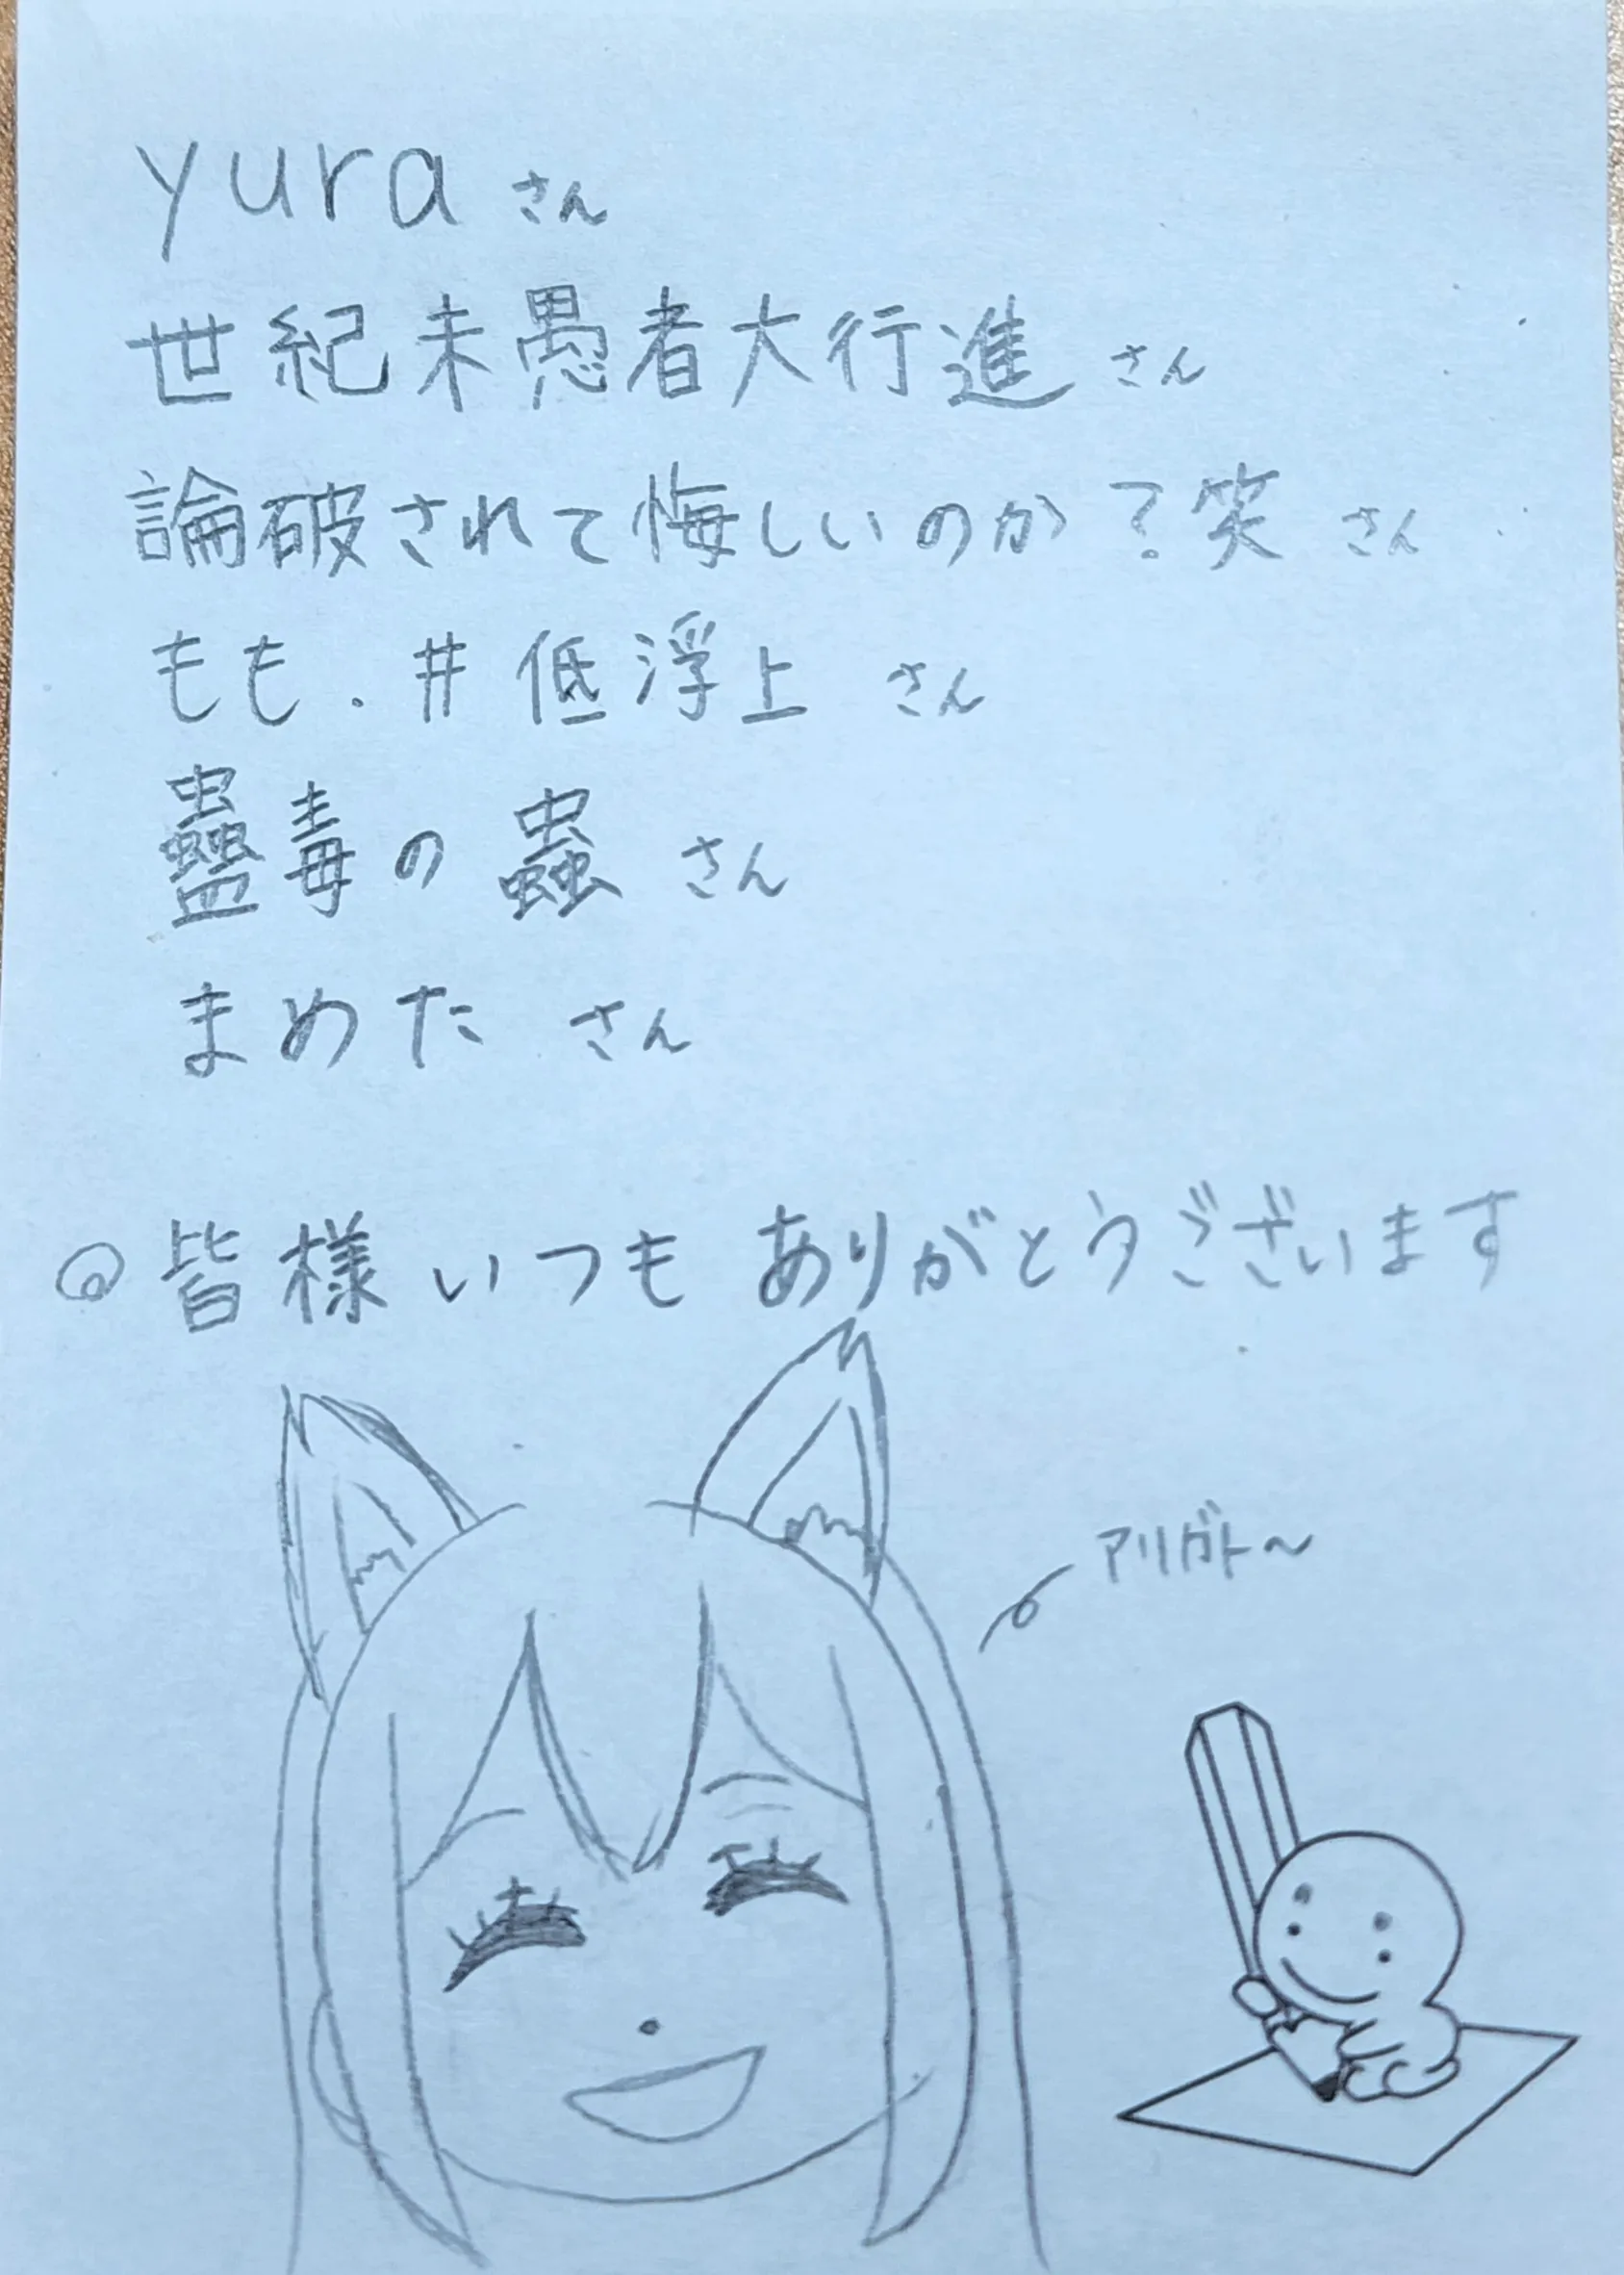 yura さん
世紀末愚者大行進 さん
論破されて悔しいのか?笑 さん
もも.#低浮上 さん
蠱毒の蟲 さん
まめた さん
皆様いつもありがとうございます
アリガト~